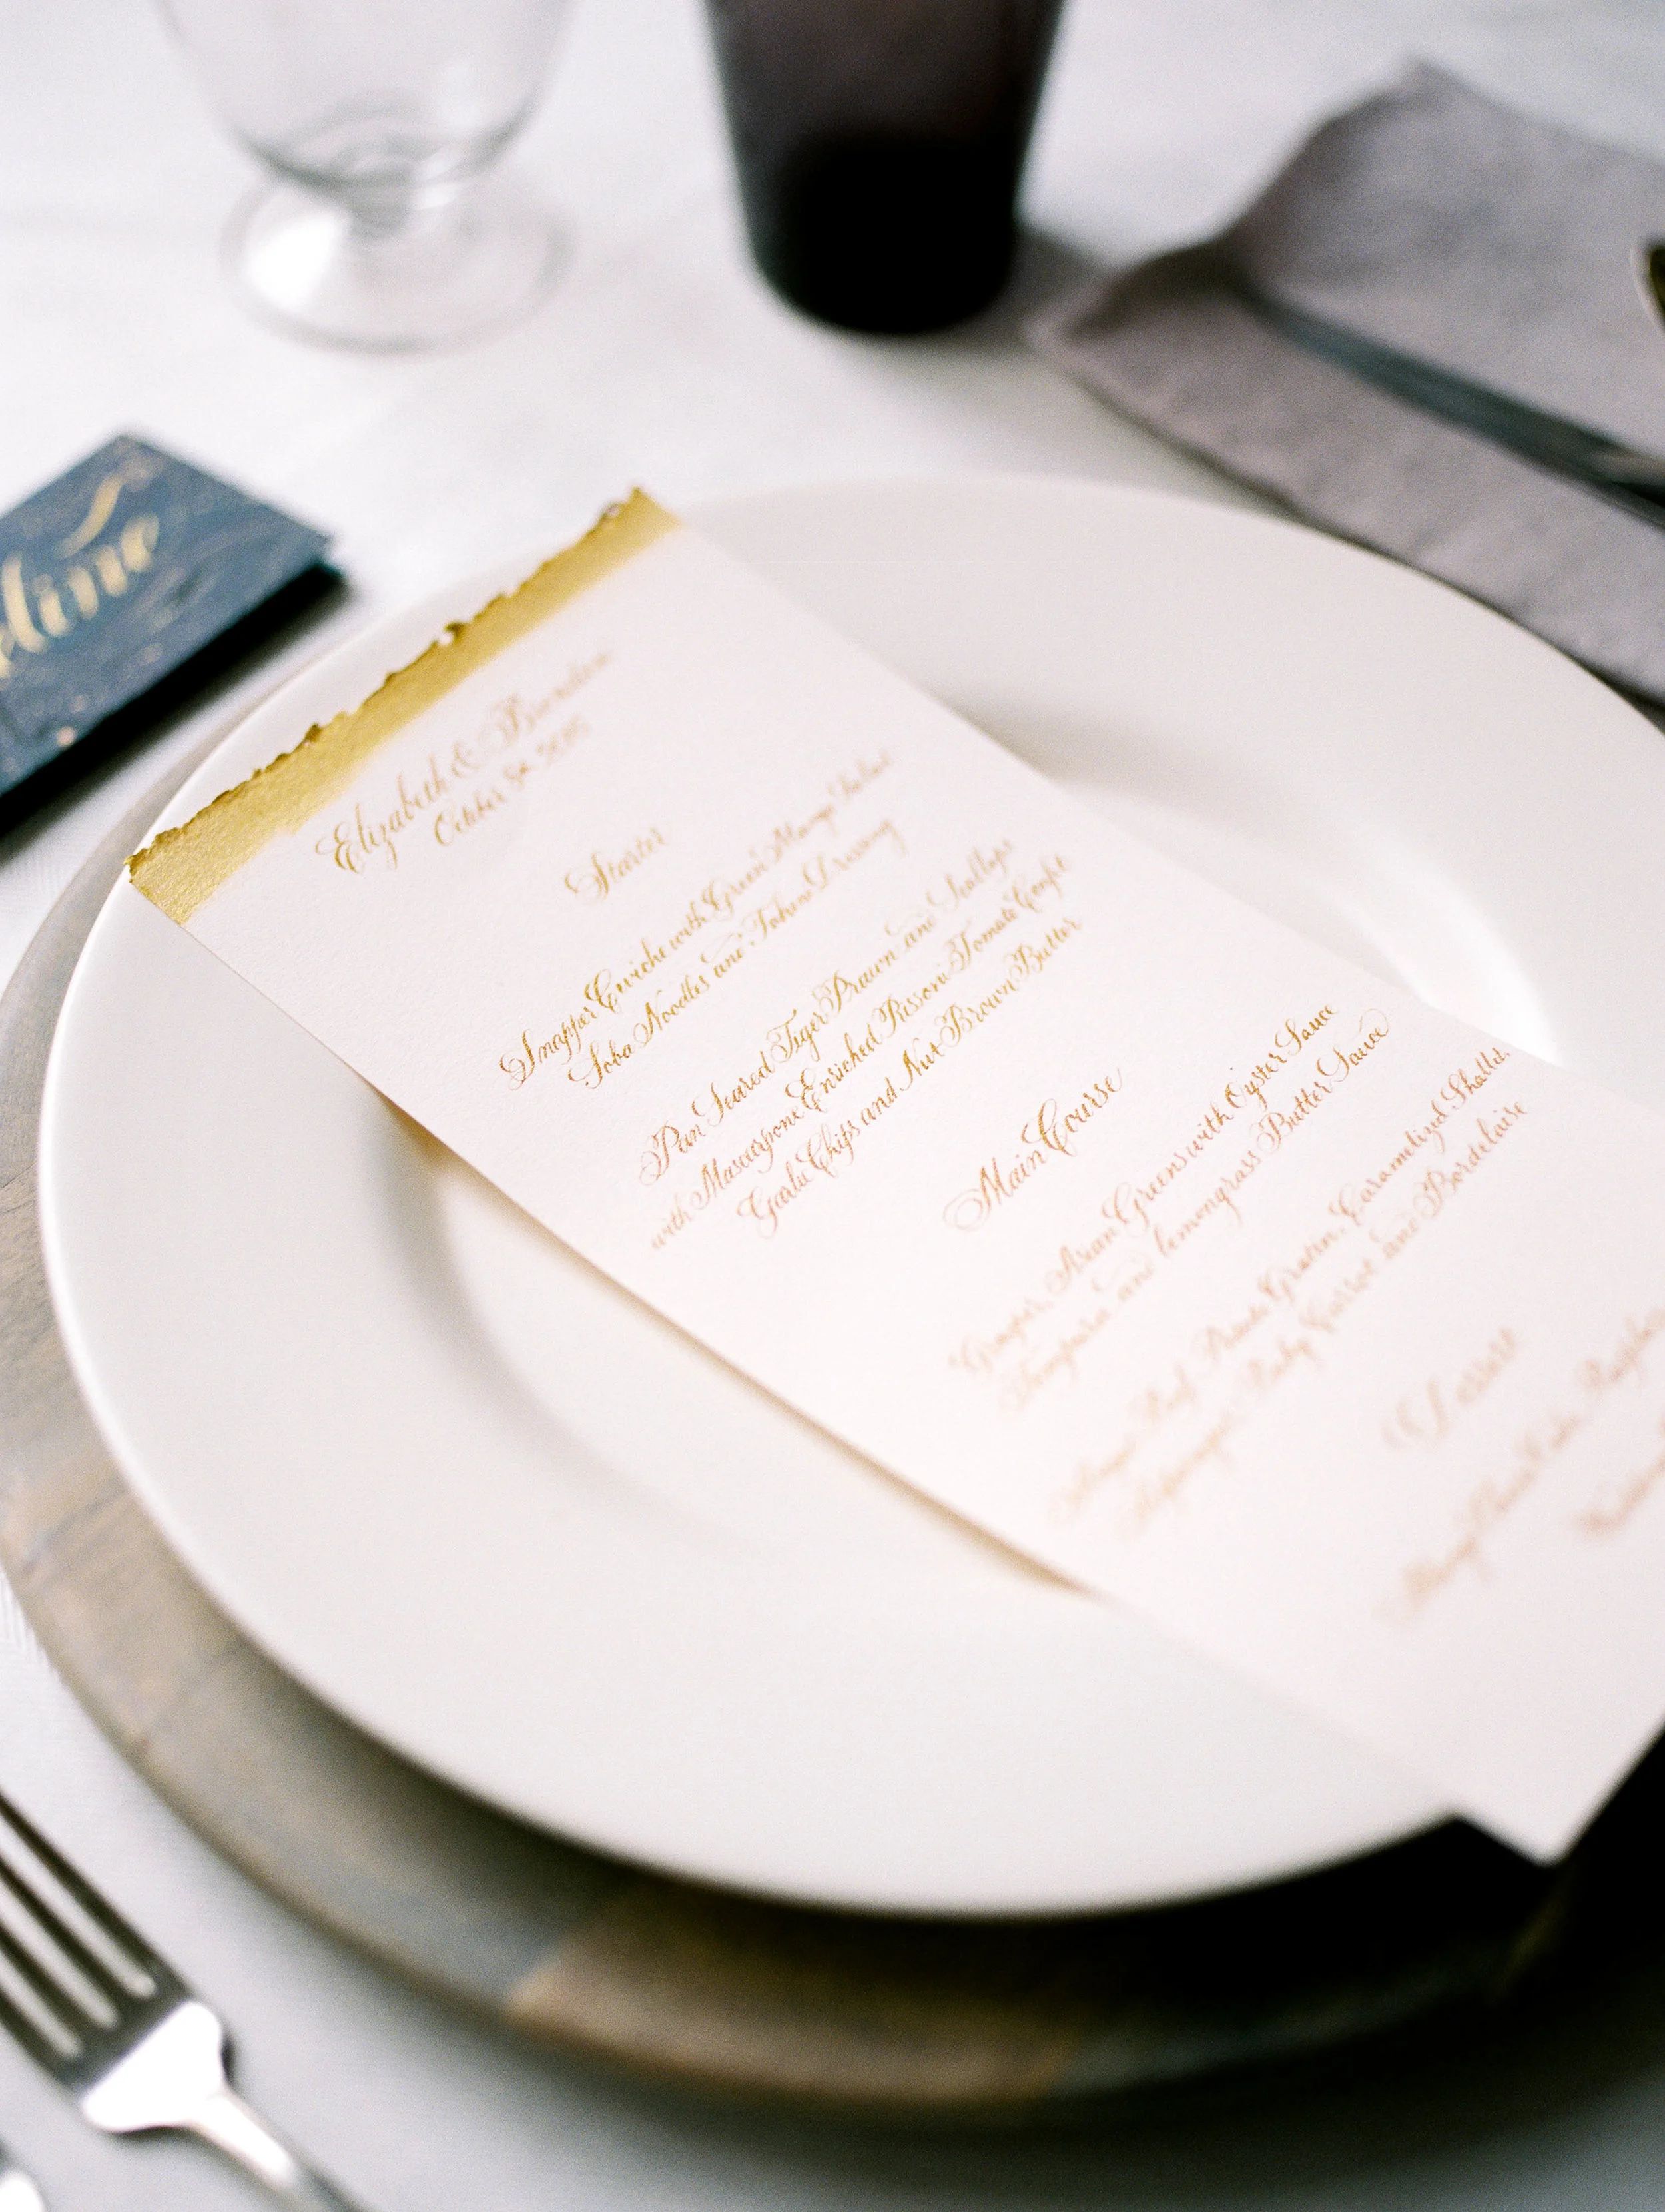 dine
Elizabeth & Brendan
October 2015
Starter
Snapper Ceviche with Green Mango Salad
Soba Noodles and Tahini Dressing
Pan Seared Tiger Prawn and Scallops
with Mascarpone Enriched Rissoni Tomato Confit
Garlic Chips and Nut Brown Butter
Main Course
Asian Greens with Oyster Sauce
Tempura and lemongrass Butter Sauce
Beef, Gratin, Caramelized Shallot,
Baby Carrot and Bordelaise
Dessert